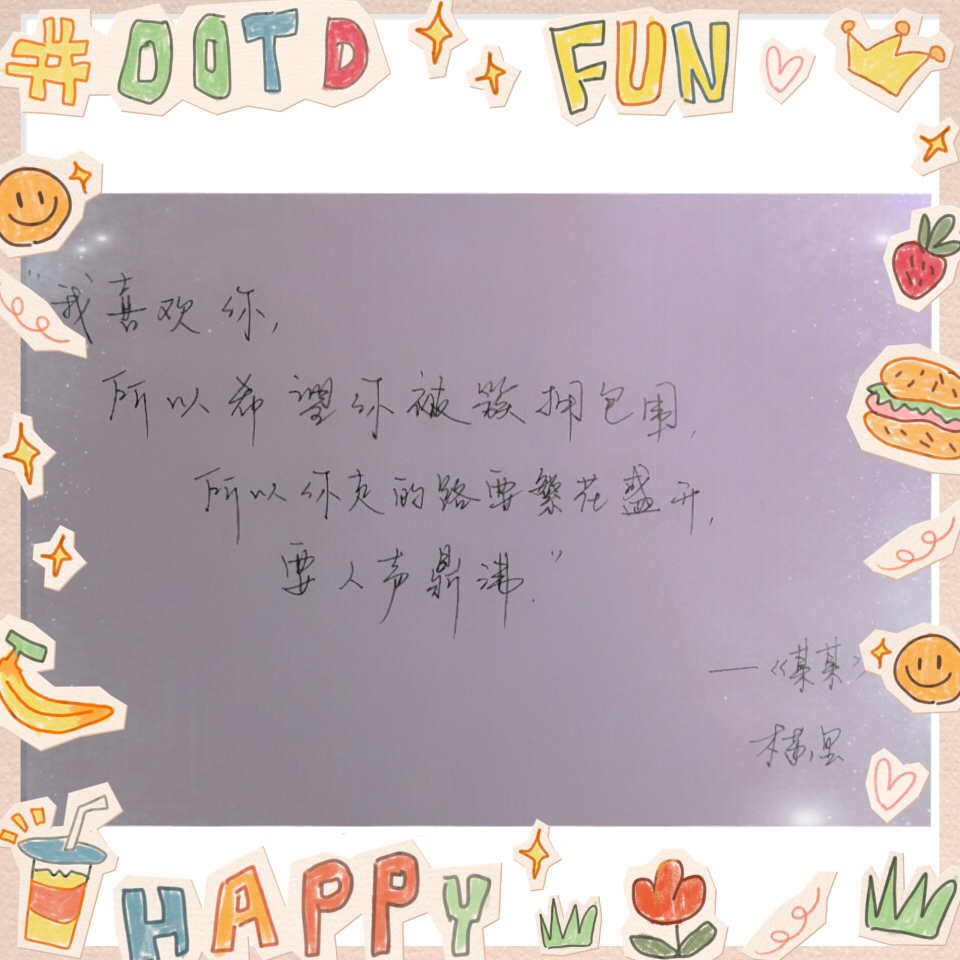 #OOTD FUN
"我喜欢你,
所以希望你被簇拥包围,
所以你走的路要繁花盛开,
要人声鼎沸."
—《某某》
木苏里
HAPPY